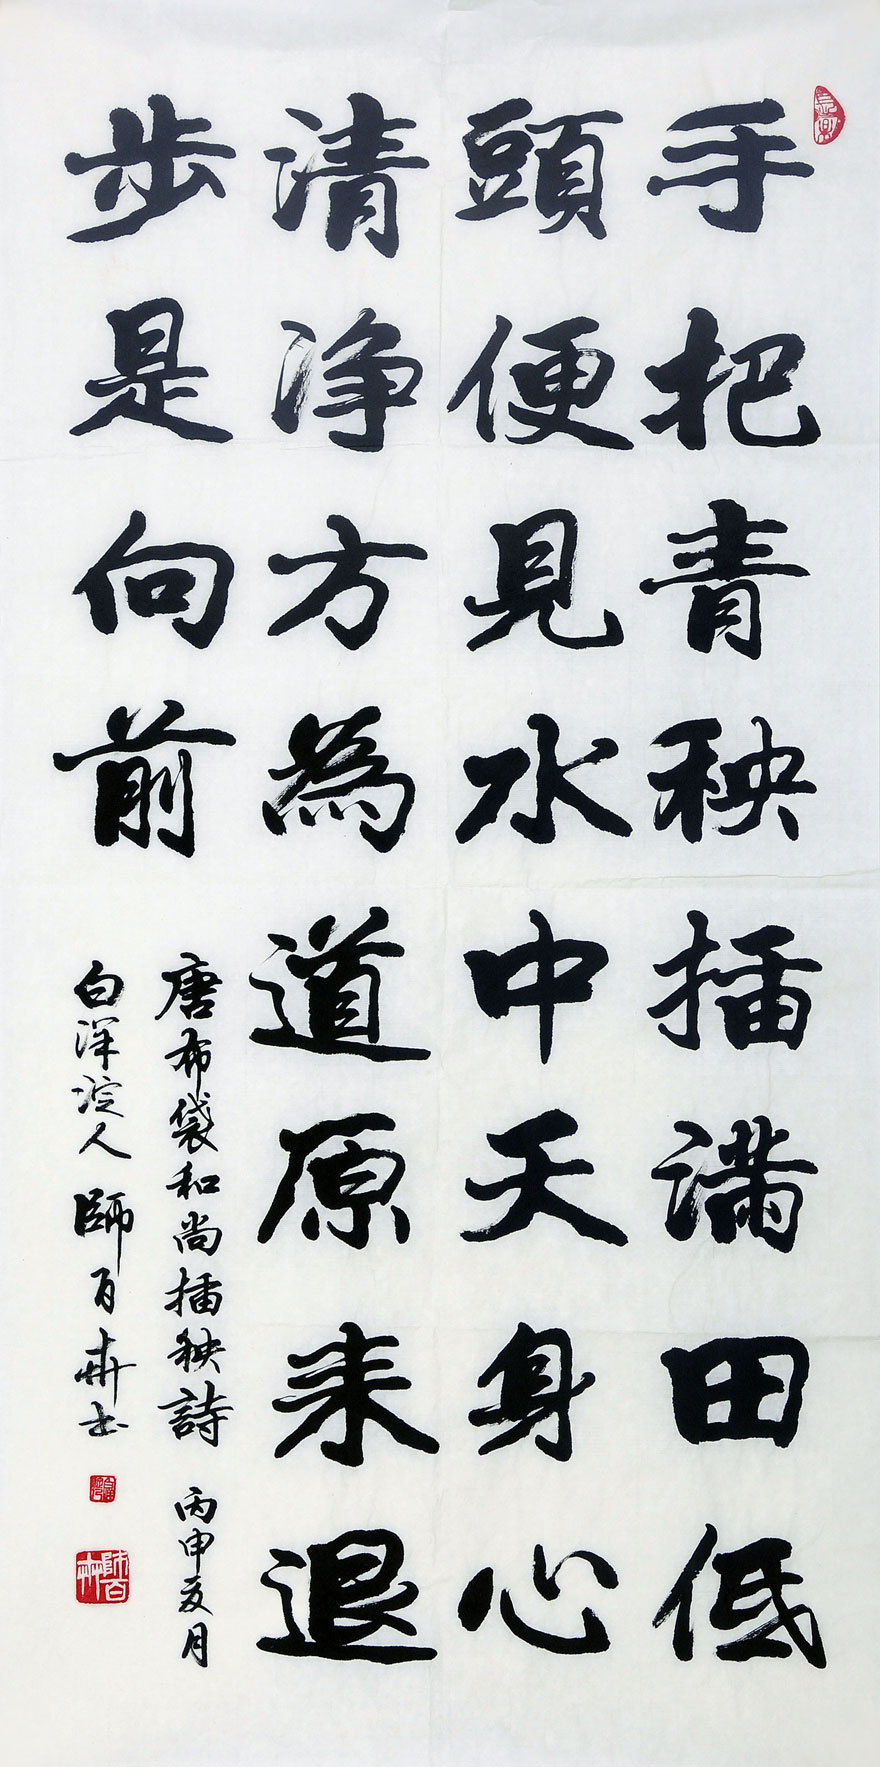 手把青秧插满田低
頭便見水中天身心
清净方為道原来退
步是向前
唐布袋和尚插秧詩 丙申夏月
白洋淀人師百卉书